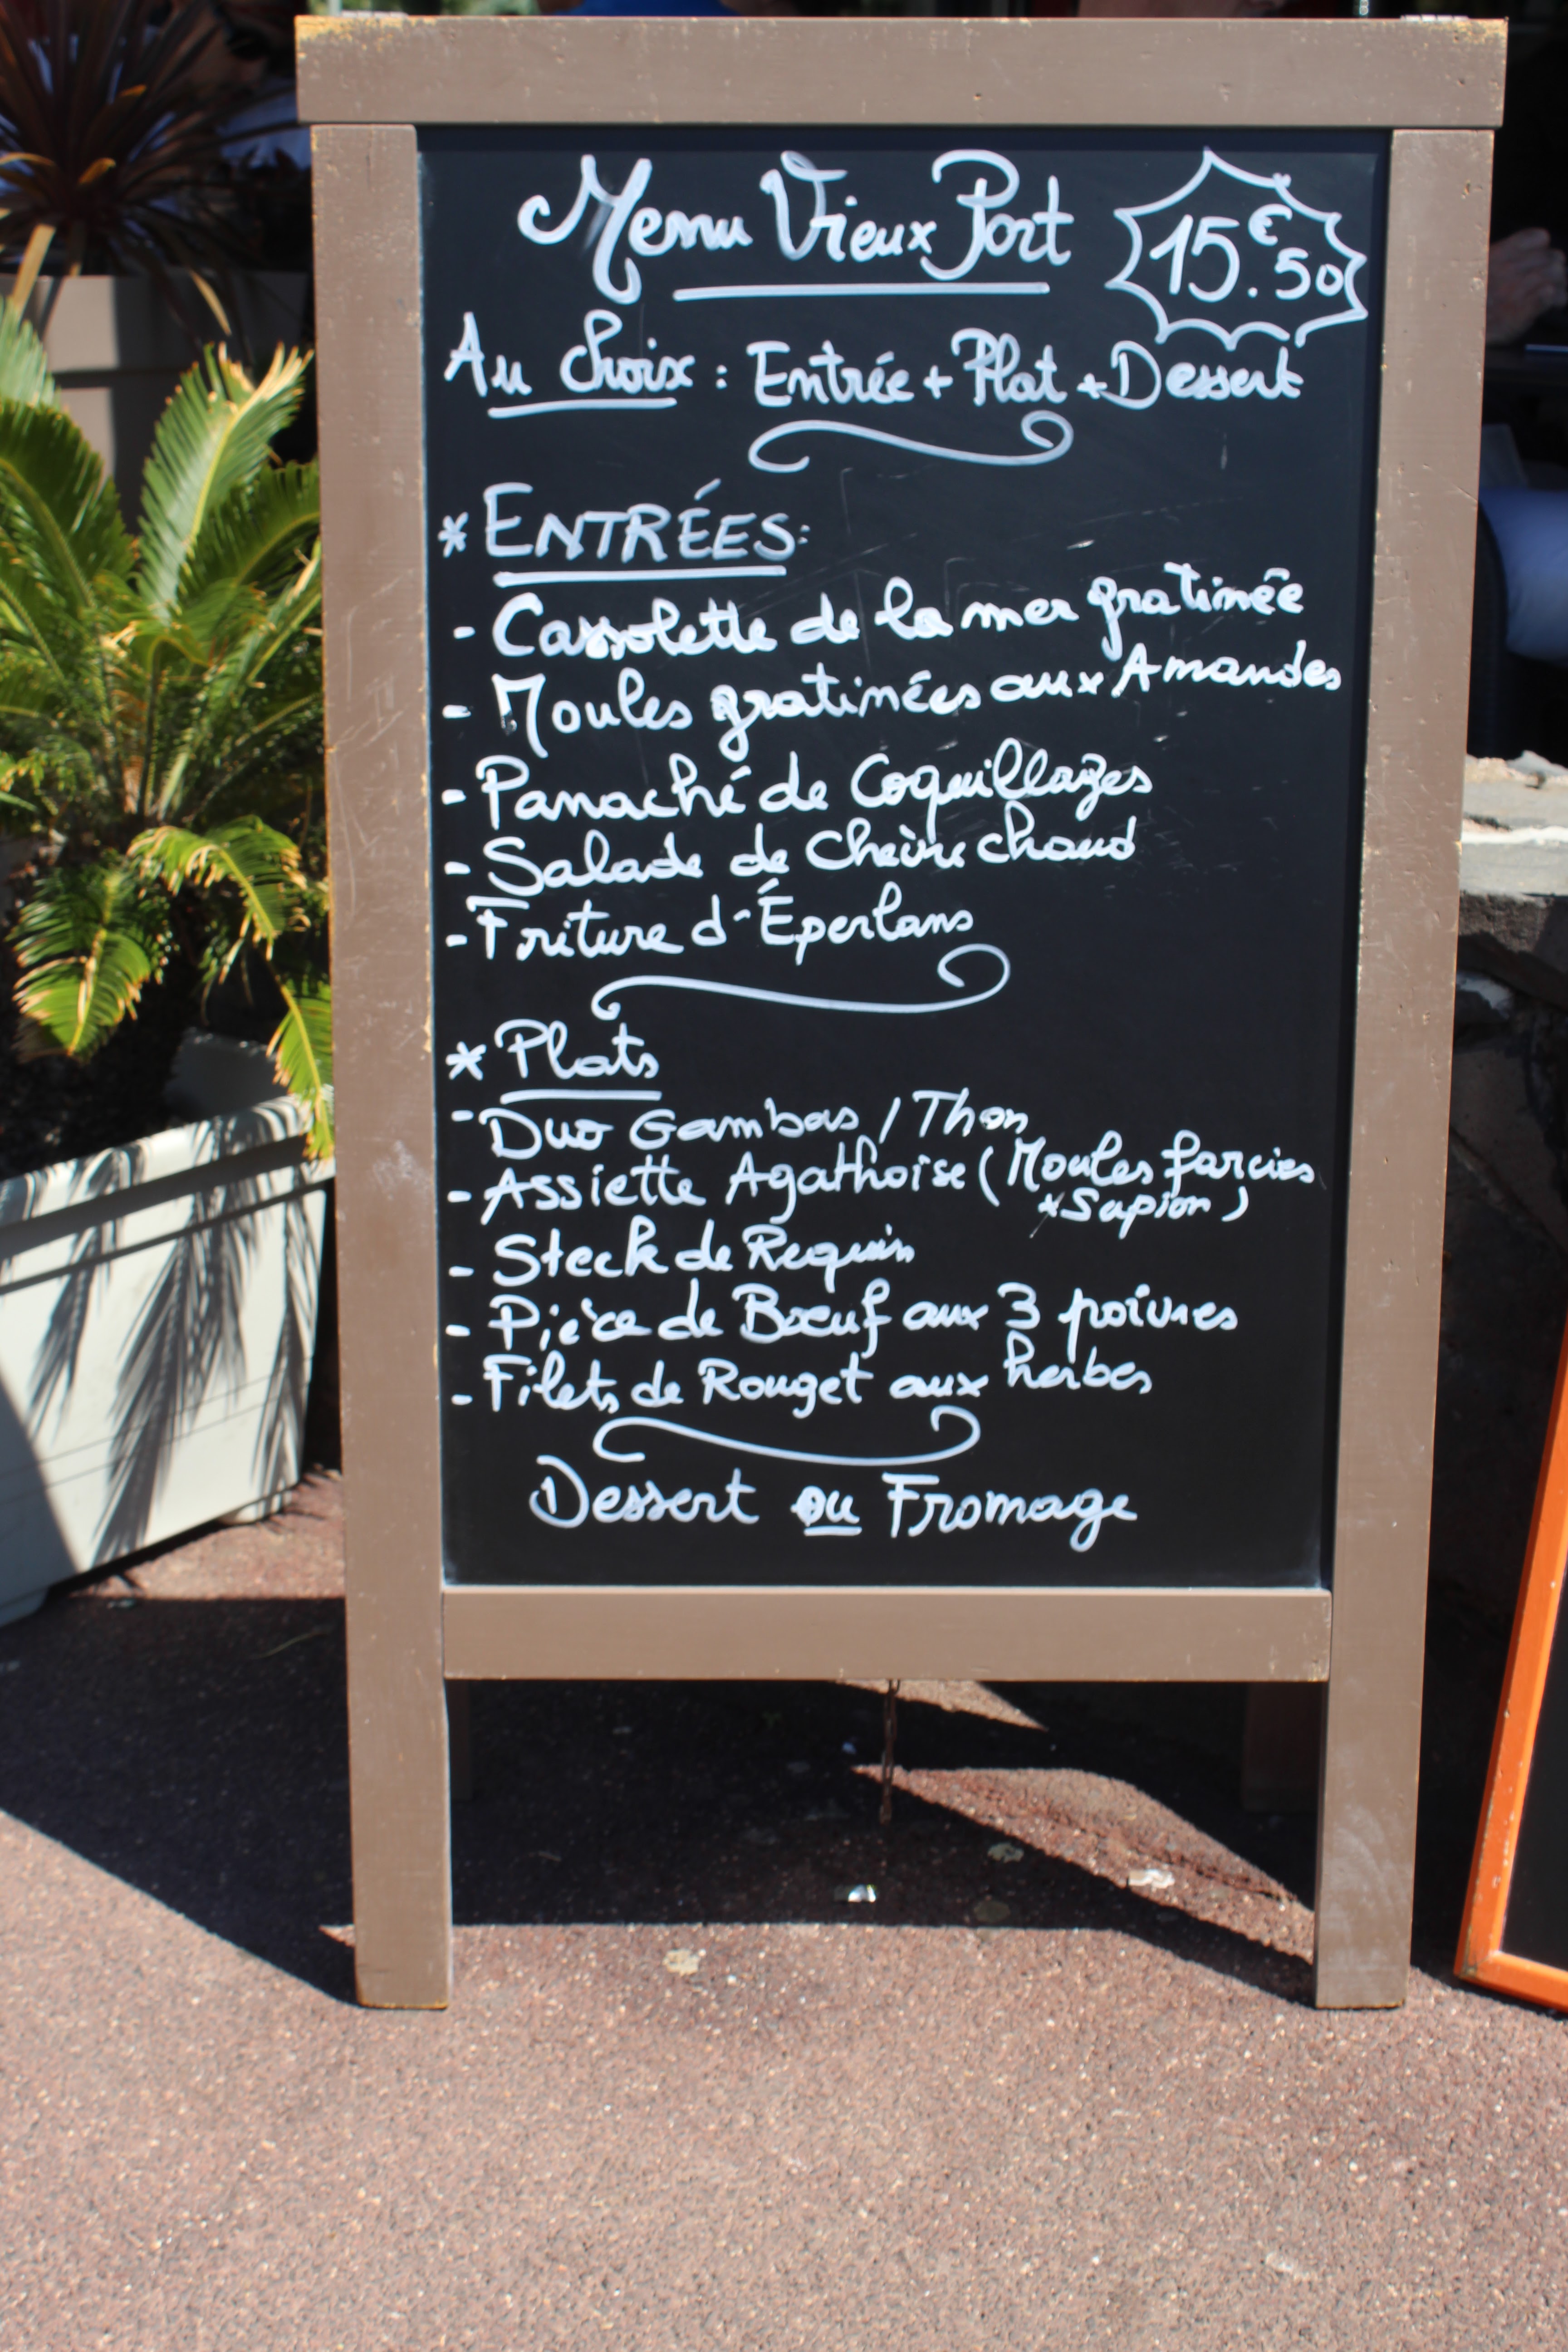 Menu Vieux Port
15.€50
Au Choix : Entrée + Plat + Dessert
* ENTRÉES:
- Cassolette de la mer gratinée
- Moules gratinées aux Amandes
- Panaché de Coquillages
- Salade de Chèvre chaud
- Friture d'Éperlans
* Plats
- Duo Gambas / Thon
- Assiette Agathoise (Moules farcies
+ Supion)
- Steck de Requin
- Pièce de Bœuf aux 3 poivres
- Filets de Rouget aux herbes
Dessert ou Fromage